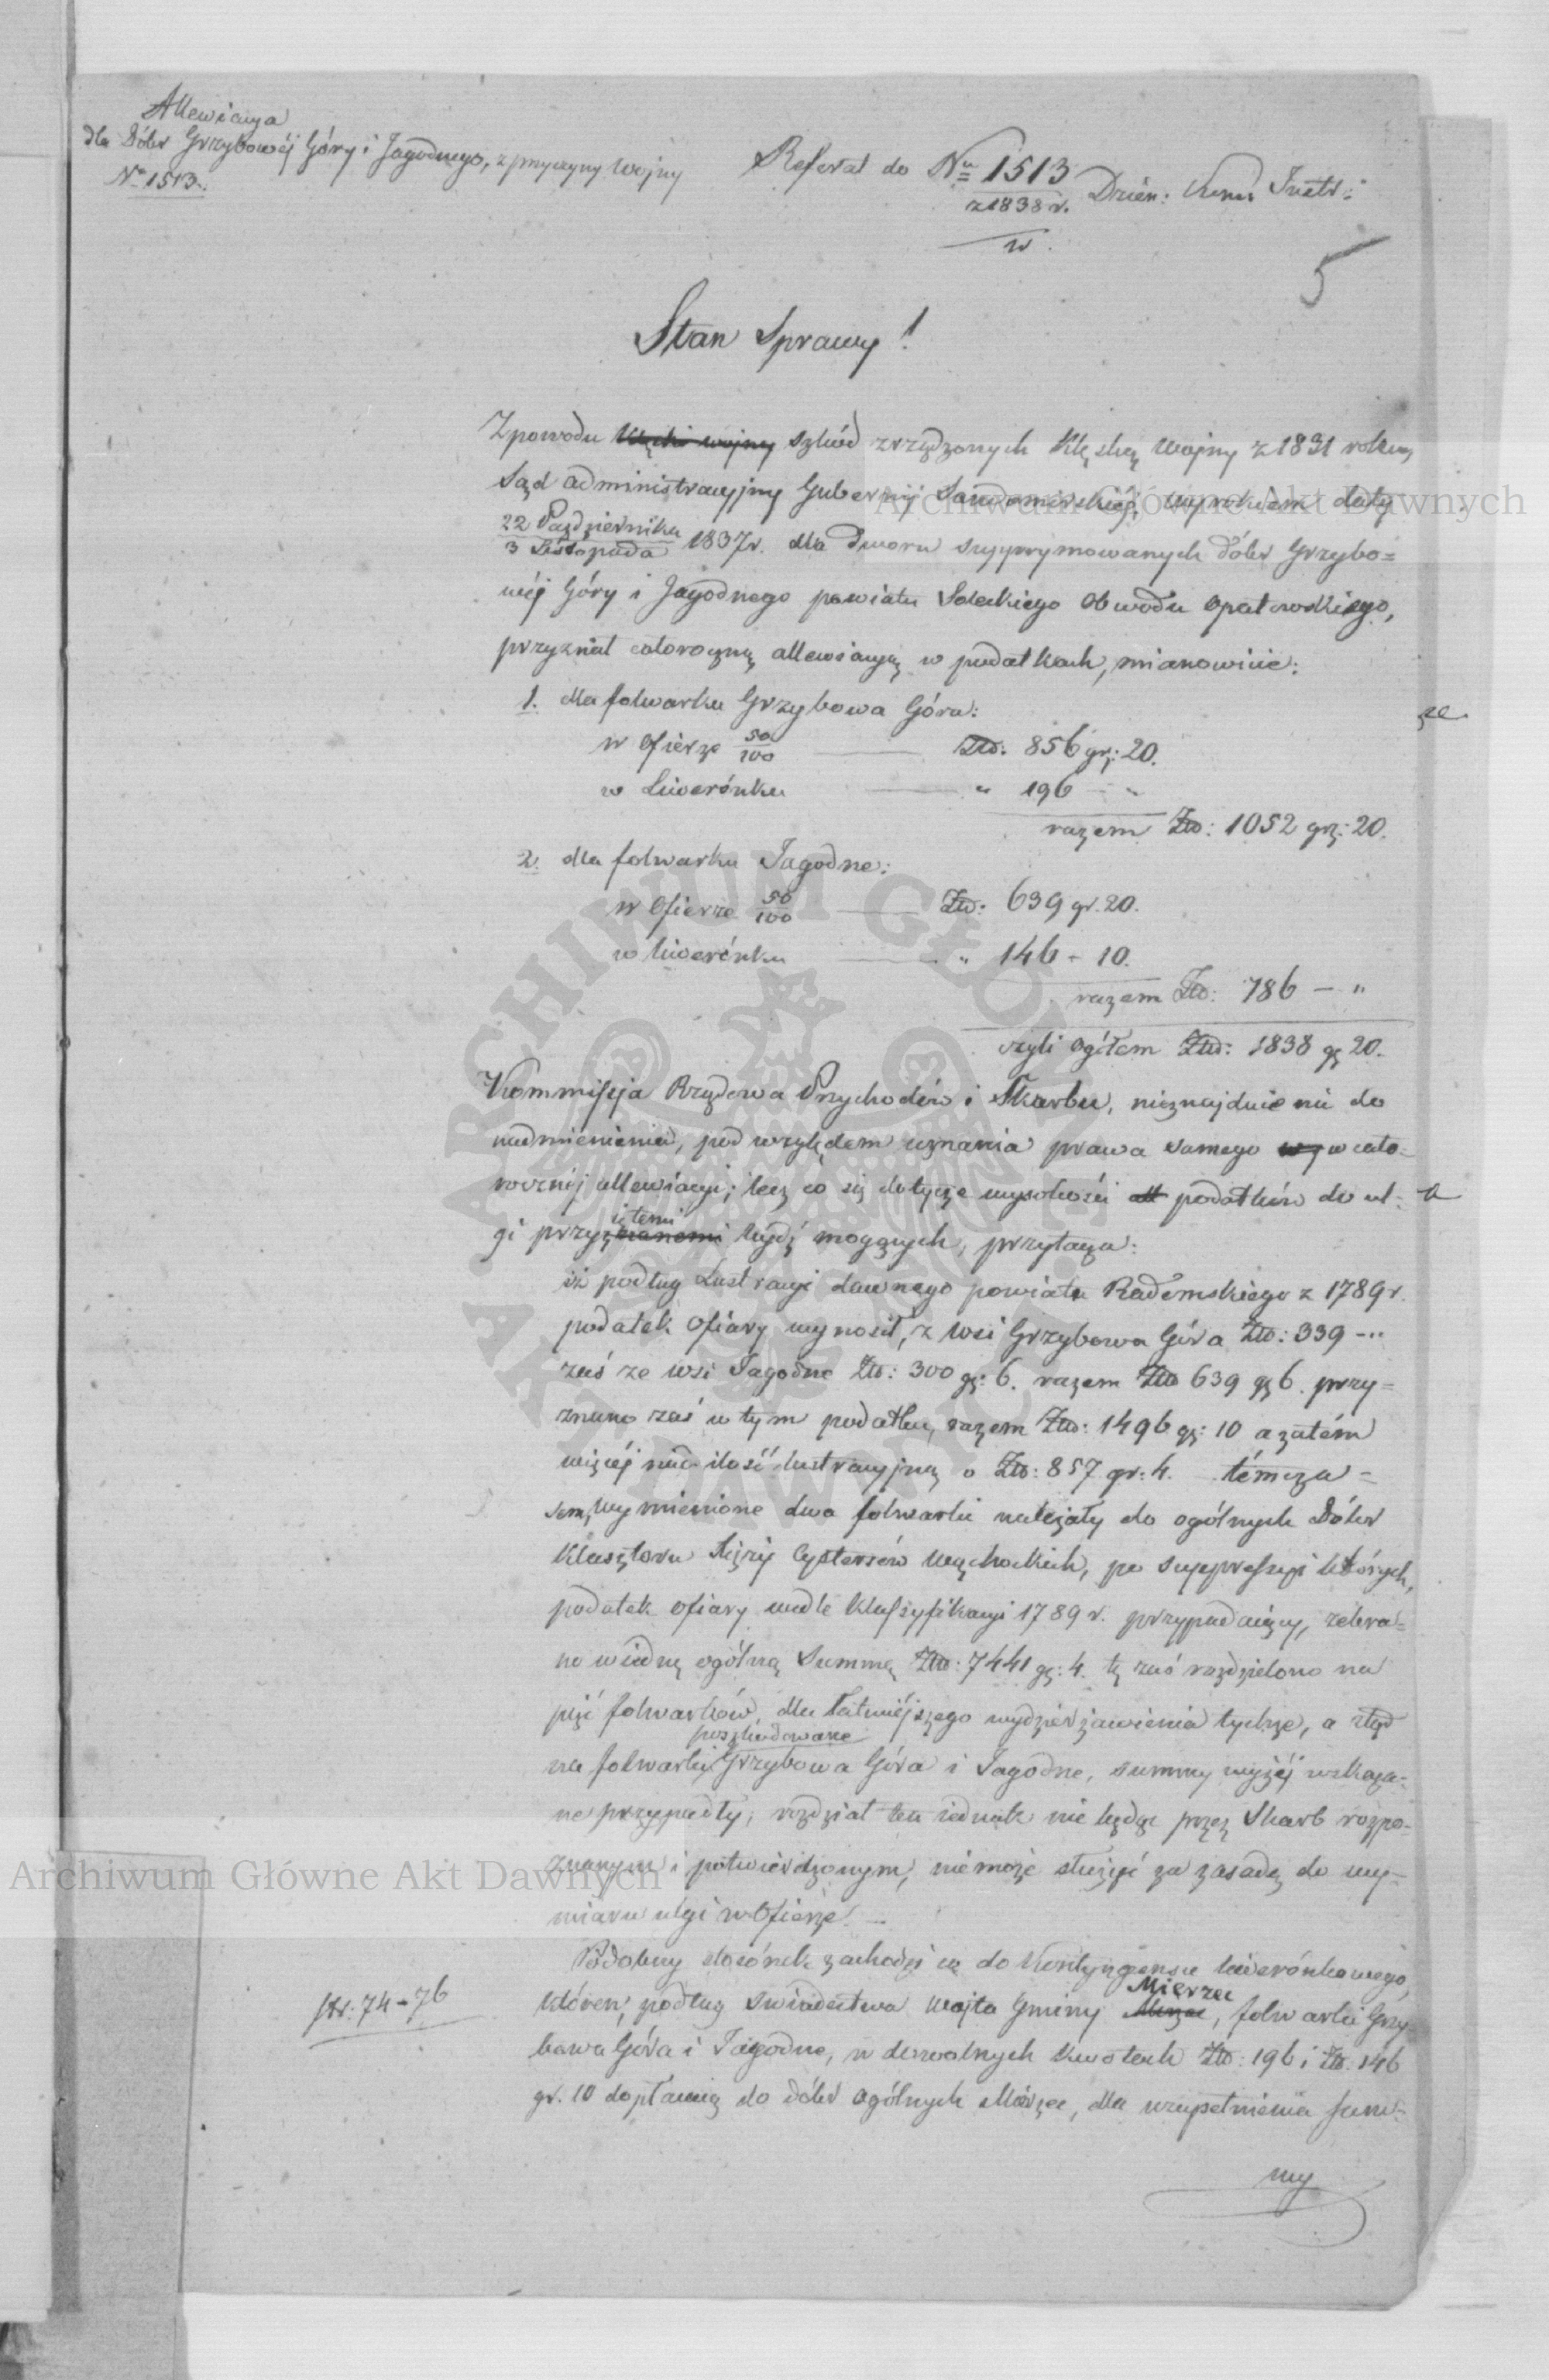 Allewiacya
dla Dóbr Grzybowéj Góry i Jagodnego, z przyczyny Wojny
No 1513.
Referat do No 1513 Dzien: Kom: Instr:
z 1838 r.
w.
5
Stan Sprawy!
Z powodu klęski wojny szkód zrządzonych klęską Wojny z 1831 roku,
Sąd administracyjny Gubernij Sandomirskiéj, wyrokiem daty
22 Października
3 Listopada 1837 r. dla Dworu suppymowanych dóbr Grzybo=
wéj Góry i Jagodnego powiatu Soleckiego Obwodu Opatowskiego,
przyznał całoroczną allewiacyą w podatkach, mianowicie:
1. dla folwarku Grzybowa Góra:
w Ofierze 50/100 — Złp: 856 gr: 20.
w Liwerónku — " 196 — "
razem Złp: 1052 gr: 20.
2. dla folwarku Jagodne:
w Ofierze 50/100 — Złp: 639 gr. 20.
w liwerónku — " 146 - 10.
razem Złp: 786 — "
czyli Ogółem Złp: 1838 gr 20.
Kommissyja Rządowa Przychodów i Skarbu, nieznajduie nic do
nadmienienia, pod względem uznania prawa samego wzg w cało-
rocznéj allewiacyi; lecz co się dotycze wysokości all podatków do ul-
gi przyznanemi iętemi bydź mogących, przytacza:
iż podług Lustracyi dawnego powiatu Radomskiego z 1789 r.
podatek Ofiary wynosił, z wsi Grzybowa Góra Złp: 339 -"
zaś ze wsi Jagodne Złp: 300 gr: 6. razem Złp 639 gr 6. przy=
znano zaś w tym podatku, razem Złp: 1496 gr: 10 a zatém
więcéj nad ilość lustracyjną o Złp: 857 gr: 4. témcza=
sem, wymienione dwa folwarki należały do ogólnych Dóbr
Klasztoru Xięży Cystersów Wąchockich, po suppressyi których,
podatek ofiary wedle Klassyfikacyi 1789 r. przypadaiący, zebra=
no w iedną ogólną Summę Złp: 7441 gr: 4. tę zaś rozdzielono na
pięć folwarków, dla łatwiéjszego wydzierżawienia tychże, a ztąd
na folwarki poszkodowane Grzybowa Góra i Jagodne, summy wyżéj wskaza-
ne przypadły; rozdział ten iednak nie będąc przez Skarb rozpo-
znanym i potwierdzonym, niemoże służyć za zasadę do wy-
miaru ulgi w Ofierze. —
Podobny stosónek zachodzi co do Kontyngensu liwerónkowego,
str: 74-76
któren, podług świadectwa Wojta Gminy Mierzec, folwarki Grzy-
bowa Góra i Jagodne, w dowolnych kwotach Złp: 196 i Złp: 146
gr. 10 dopłacaią do dóbr Ogólnych Mirzec, dla uzupełnienia sum-
my